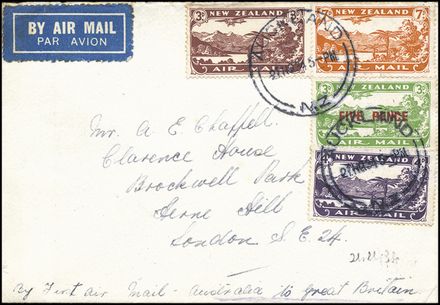 BY AIR MAIL
PAR AVION
3d NEW ZEALAND
AIR MAIL
NEW ZEALAND 7d
AIR MAIL
NEW ZEALAND 3d
FIVE PENCE
AIR MAIL
NEW ZEALAND
AIR MAIL
AUCKLAND
N.Z.
AUCKLAND
27 NO 34
N.Z.
Mr. A E Chaffell
Clarence House
Brockwell Park
Herne Hill
London S.E. 24.
By First Air Mail - Australia to Great Britain